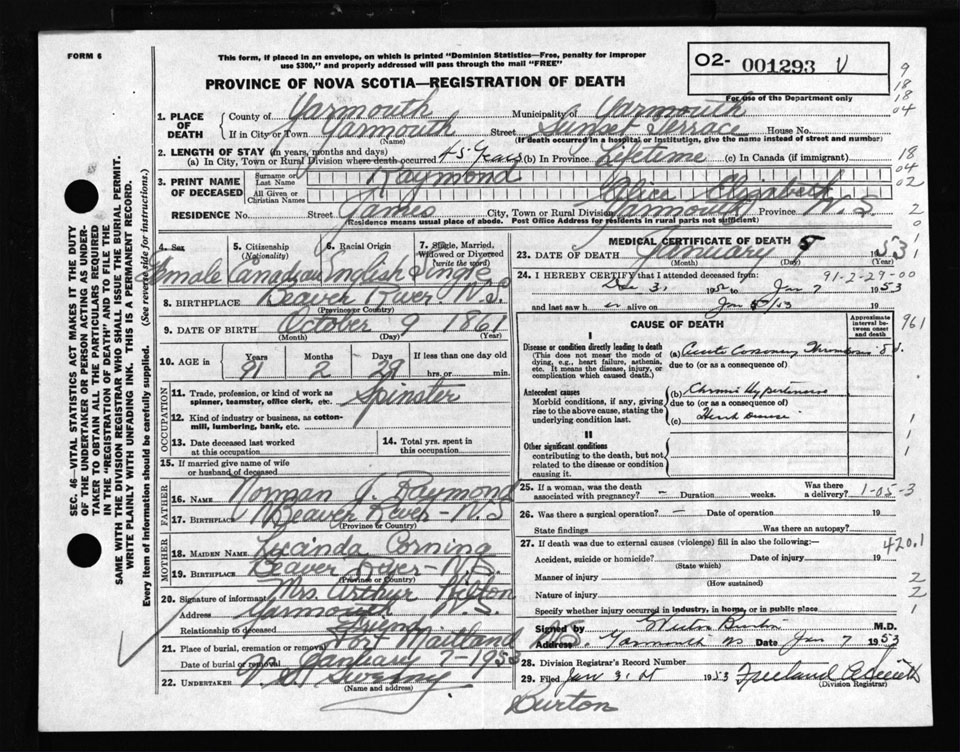 FORM 6
This form, if placed in an envelope, on which is printed "Dominion Statistics—Free, penalty for improper
use $300," and properly addressed will pass through the mail "FREE"
PROVINCE OF NOVA SCOTIA—REGISTRATION OF DEATH
O2- 001293 V
For use of the Department only
1. PLACE OF DEATH
County of Yarmouth Municipality of Yarmouth
If in City or Town Yarmouth Street Sunset Terrace House No.
(Name) (If death occurred in a hospital or institution, give the name instead of street and number)
2. LENGTH OF STAY (in years, months and days)
(a) In City, Town or Rural Division where death occurred 45 Years (b) In Province Lifetime (c) In Canada (if immigrant)
3. PRINT NAME OF DECEASED
Surname or Last Name Raymond
All Given or Christian Names Alice Elizabeth
RESIDENCE No. Street James City, Town or Rural Division Yarmouth Province N.S.
(Residence means usual place of abode. Post Office Address for residents in rural parts not sufficient)
4. Sex Female
5. Citizenship (Nationality) Canadian
6. Racial Origin English
7. Single, Married, Widowed or Divorced (write the word) Single
8. BIRTHPLACE Beaver River N.S.
(Province or Country)
9. DATE OF BIRTH October 9 1861
(Month) (Day) (Year)
10. AGE in Years 91 Months 2 Days 29 If less than one day old hrs. or min.
OCCUPATION
11. Trade, profession, or kind of work as spinner, teamster, office clerk, etc. Spinster
12. Kind of industry or business, as cotton-mill, lumbering, bank, etc.
13. Date deceased last worked at this occupation
14. Total yrs. spent in this occupation
15. If married give name of wife or husband of deceased
FATHER
16. NAME Norman J. Raymond
17. BIRTHPLACE Beaver River - N.S
(Province or Country)
MOTHER
18. MAIDEN NAME Lucinda Corning
19. BIRTHPLACE Beaver River - N.S.
(Province or Country)
20. Signature of informant Mrs. Arthur Hilton
Address Yarmouth N.S.
Relationship to deceased Friend
21. Place of burial, cremation or removal Port Maitland
Date of burial or removal January 7-1953
22. UNDERTAKER V.S. Sweeny
(Name and address)
MEDICAL CERTIFICATE OF DEATH
23. DATE OF DEATH January 7 1953
(Month) (Day) (Year)
24. I HEREBY CERTIFY that I attended deceased from:
91-2-29-00
Dec 31 1952 to Jan 7 1953
and last saw her alive on Jan 19
CAUSE OF DEATH
Approximate interval between onset and death
I
Disease or condition directly leading to death
(This does not mean the mode of dying, e.g., heart failure, asthenia, etc. It means the disease, injury, or complication which caused death.)
(a) Acute Coronary Thrombosis
due to (or as a consequence of)
Antecedent causes
Morbid conditions, if any, giving rise to the above cause, stating the underlying condition last.
(b) Chronic Hypertensive
due to (or as a consequence of)
(c) Heart Disease
II
Other significant conditions
contributing to the death, but not related to the disease or condition causing it.
25. If a woman, was the death associated with pregnancy? - Duration weeks. Was there a delivery?
1-05-3
26. Was there a surgical operation? - Date of operation 19
State findings Was there an autopsy?
27. If death was due to external causes (violence) fill in also the following:—
420.1
Accident, suicide or homicide? Date of injury 19
(State which)
Manner of injury
(How sustained)
Nature of injury
Specify whether injury occurred in industry, in home, or in public place
Signed by Burton M.D.
Address Yarmouth NS Date Jan 7 1953
28. Division Registrar's Record Number
29. Filed Jan 1953
(Division Registrar)
Burton
SEC. 46—VITAL STATISTICS ACT MAKES IT THE DUTY
OF THE UNDERTAKER OR PERSON ACTING AS UNDER-
TAKER TO OBTAIN ALL THE PARTICULARS REQUIRED
IN THE "REGISTRATION OF DEATH" AND TO FILE THE
SAME WITH THE DIVISION REGISTRAR WHO SHALL ISSUE THE BURIAL PERMIT.
WRITE PLAINLY WITH UNFADING INK. THIS IS A PERMANENT RECORD.
Every item of information should be carefully supplied. (See reverse side for instructions.)
9
18
18
04
18
04
02
2
0
1
1
961
1
1
1
2
2
1